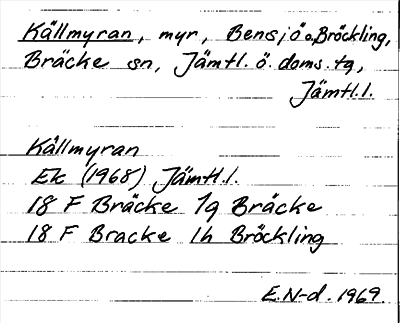 Källmyran, myr, Bensjö o. Bröckling,
Bräcke sn, Jämtl. ö. doms. tg,
Jämtl.l.
Källmyran
Ek (1968) Jämtl.l.
18 F Bräcke 1g Bräcke
18 F Bracke 1h Bröckling
E.N-d. 1969.